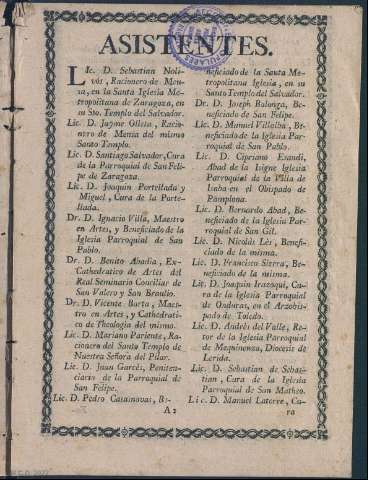 ASISTENTES.
Lic. D. Sebastian Noli-
vós, Racionero de Men-
sa, en la Santa Iglesia Me-
tropolitana de Zaragoza, en
su Sto. Templo del Salvador.
Lic. D. Jayme Ollèta, Racio-
nero de Mensa del mismo
Santo Templo.
Lic. D. Santiago Salvador, Cura
de la Parroquial de San Feli-
pe de Zaragoza.
Lic. D. Joaquin Portellada y
Miguel, Cura de la Porte-
llada.
Dr. D. Ignacio Villa, Maestro
en Artes, y Beneficiado de la
Iglesia Parroquial de San
Pablo.
Dr. D. Benito Abadia, Ex-
Cathedratico de Artes del
Real Seminario Conciliar de
San Valero y San Braulio.
Dr. D. Vicente Borta, Maes-
tro en Artes, y Cathedrati-
co de Theologia del mismo.
Lic. D. Mariano Pariente, Ra-
cionero del Santo Templo de
Nuestra Señora del Pilar.
Lic. D. Juan Garcés, Peniten-
ciario de la Parroquial de
San Felipe.
Lic. D. Pedro Casainovas, Be-
A2
neficiado de la Santa Me-
tropolitana Iglesia, en su
Santo Templo del Salvador.
Dr. D. Joseph Balonga, Be-
neficiado de San Felipe.
Lic. D. Manuel Villalba, Be-
neficiado de la Iglesia Par-
roquial de San Pablo.
Lic. D. Cipriano Esandi,
Abad de la Isigne Iglesia
Parroquial de la Villa de
Isaba en el Obispado de
Pamplona.
Lic. D. Bernardo Abad, Be-
neficiado de la Iglesia Par-
roquial de San Gil.
Lic. D. Nicolás Lès, Benefi-
ciado de la misma.
Lic. D. Francisco Sizera, Be-
neficiado de la misma.
Lic. D. Joaquin Irazoqui, Cu-
ra de la Iglesia Parroquial
de en el Arzobis-
pado de Toledo.
Lic. D. Andrés del Valle, Re-
tor de la Iglesia Parroquial
de Mequinenza, Diocesis de
Lerida.
Lic. D. Sebastian de Sebas-
tian, Cura de la Iglesia
Parroquial de San Matheo.
Lic. D. Manuel Latorre, Cu-
ra